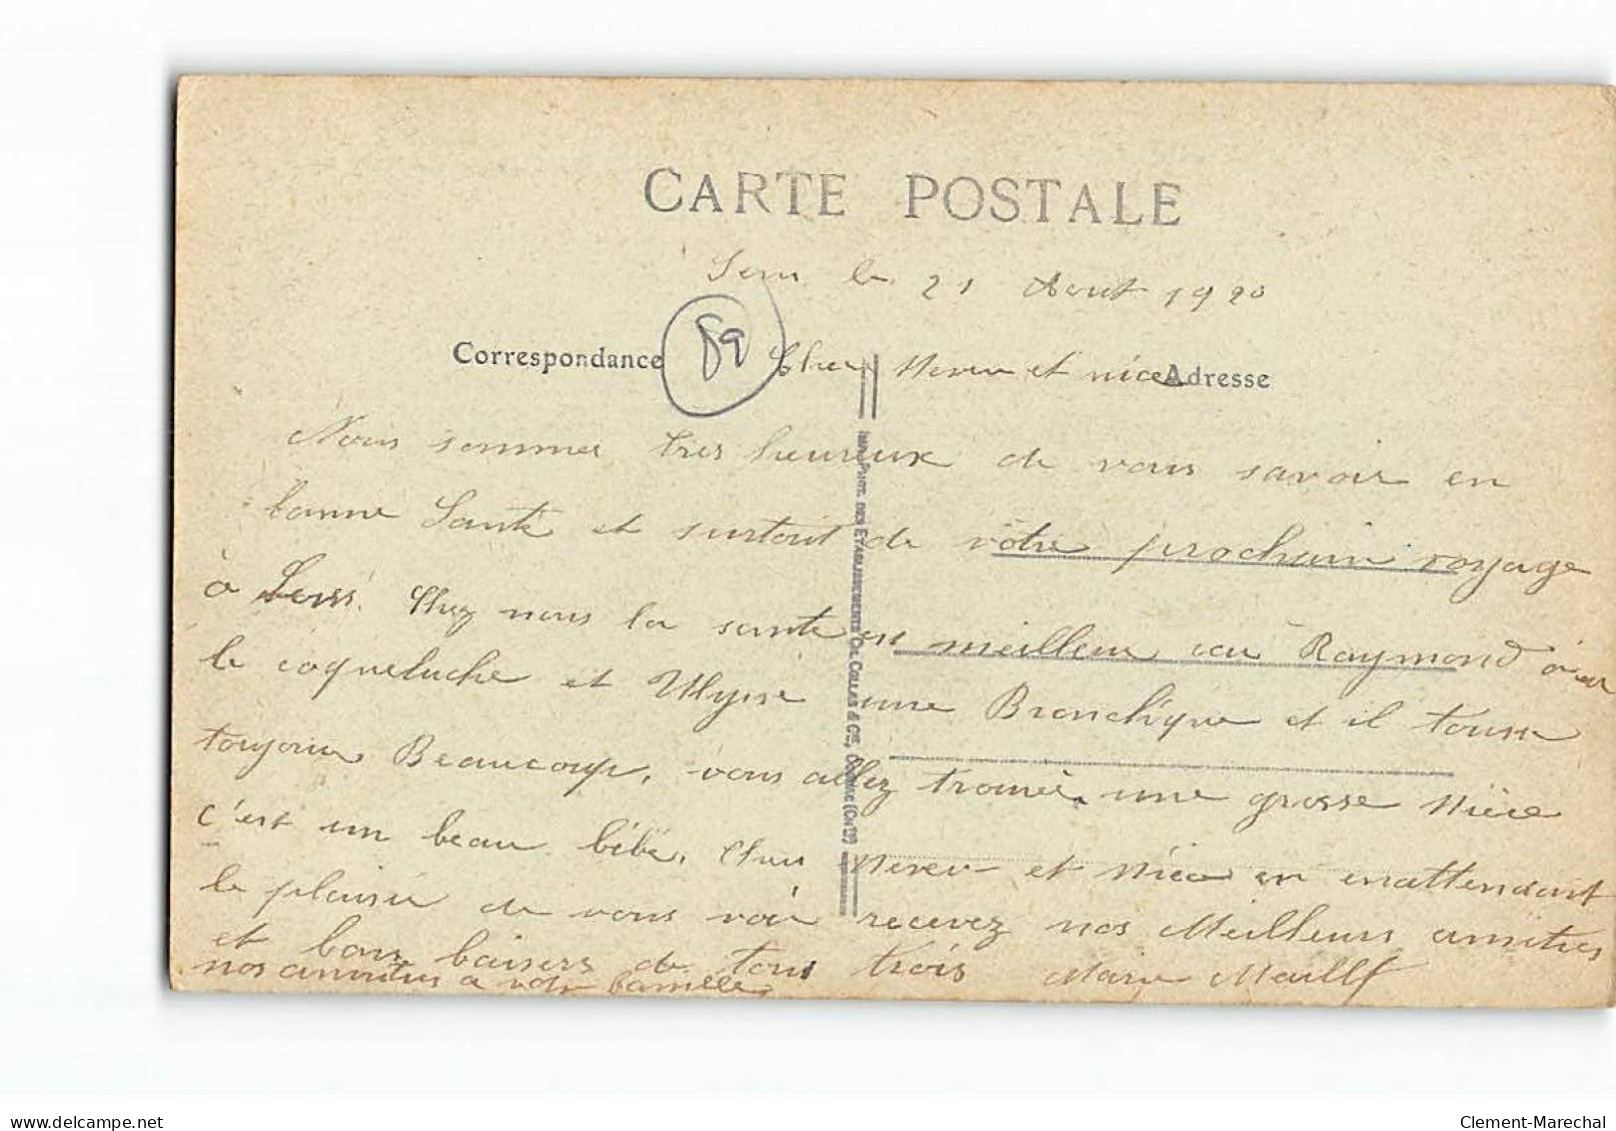 CARTE POSTALE
le 21 Aout 1920
Correspondance
89
Cher Neveu et nièce
Adresse
Nous sommes tres heureux de vous savoir en
bonne Santé et surtout de vôtre prochain voyage
à Chez nous la sante est meilleur car Raymond à eu
la coqueluche et Ulysse une Bronchique et il tousse
toujours Beaucoup, vous allez trouvé une grosse Nièce
c'est un beau bébé, Cher Neveu et Nièce en enattendant
le plaisir de vous voir recevez nos Meilleurs amitiés
et bons baisers de tous trois Marie
nos amitiés a votre famille
IMP. PHOT. DES ETABLISSEMENTS CH. COLLAS & CIE, COGNAC (CHTE)
delcampe.net
Clement-Marechal